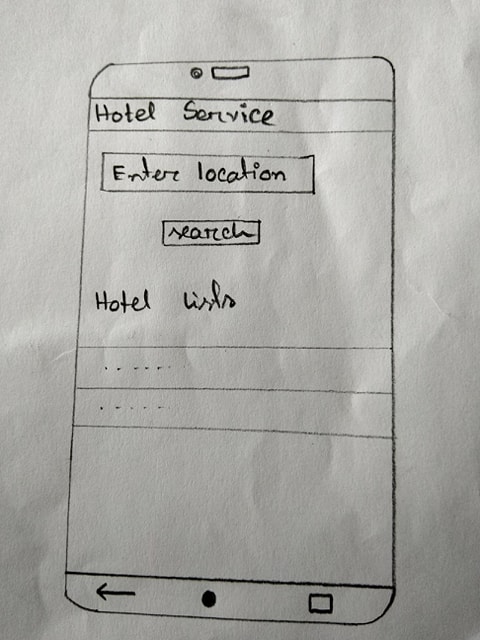 Hotel Service
Enter location
search
Hotel lists
......
......